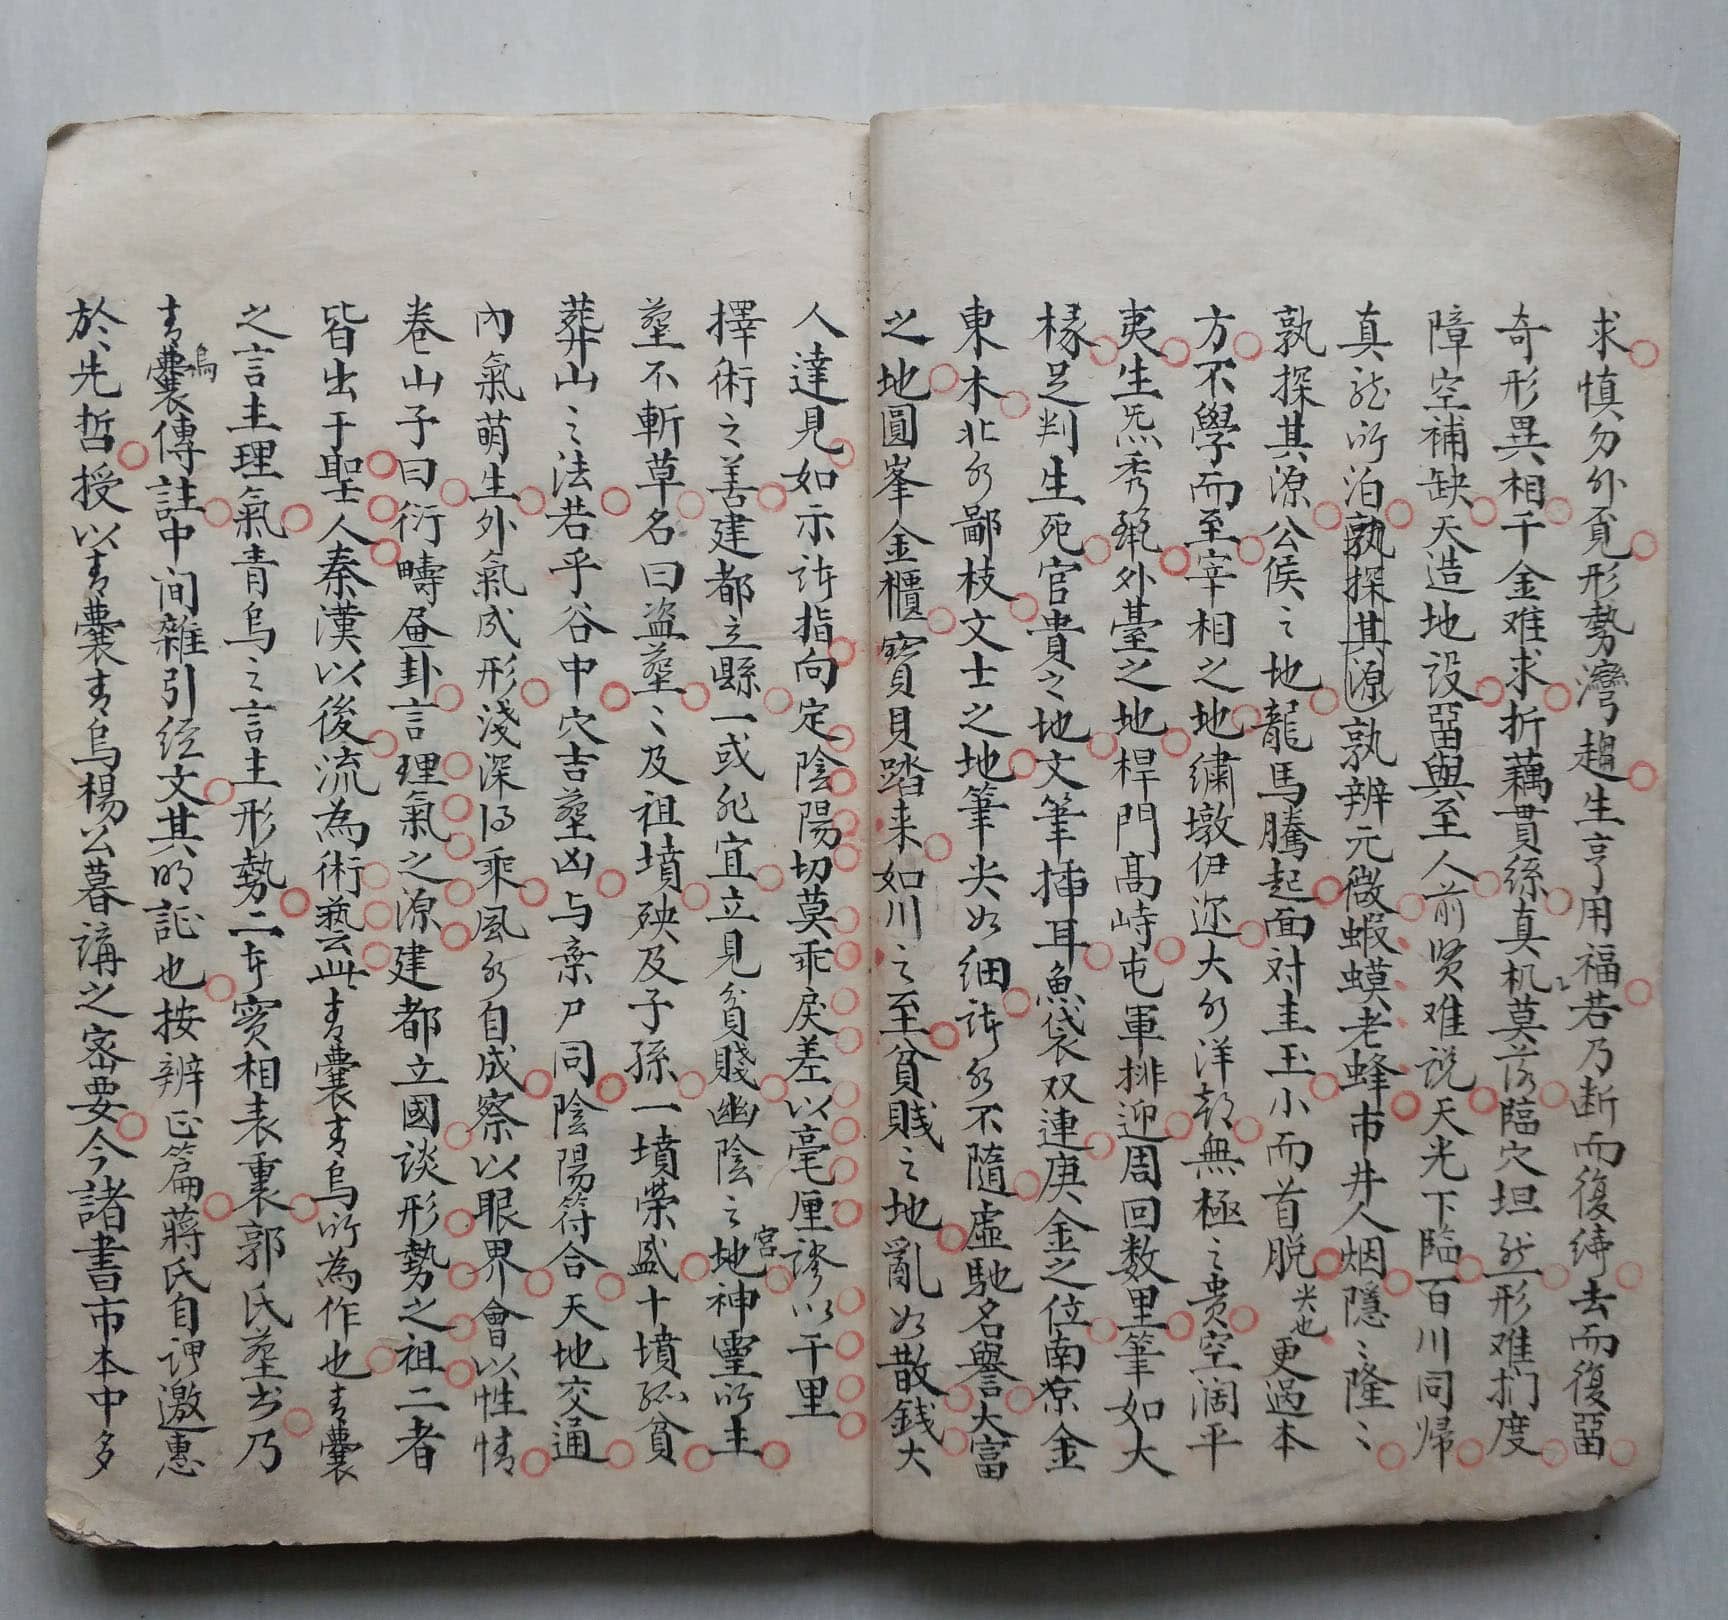 求慎勿外覓形勢灣趨生亨用福若乃断而復續去而復畱
奇形異相千金难求折藕貫絲真机莫落臨穴坦然形难捫度
障空補缺天造地設畱與至人前贤难说天光下臨百川同歸
真龙所泊孰探其源孰辨元微蝦蟆老蜂市井人烟隱〻隆〻
孰探其源公侯之地龍馬騰起面对圭玉小而首脱尖也更過本
方不學而至宰相之地繡墩伊迩大水洋朝無極之贵空阔平
夷生炁秀氣外臺之地桿門高峙屯軍排迎周回数里筆如大
椽足判生死官貴之地文筆插耳魚袋双連庚金之位南京金
東木北水鄙枝文士之地筆尖如細詐水不隨虛馳名譽大富
之地圓峯金櫃寶貝踏来如川之至貧賎之地亂如散錢大
人達見如示詐指向定陰陽切莫乖戾差以毫厘謬以千里
擇術之善建都立縣一或非宜立見貧賤幽陰之地宮神靈所主
塟不斬草名曰盗塟〻及祖墳殃及子孫一墳荣盛十墳孤貧
葬山之法若乎谷中穴吉塟凶与棄尸同陰陽符合天地交通
內氣萌生外氣成形淺深得乘風水自成察以眼界會以性情
卷山子曰衍疇画卦言理氣之源建都立國談形勢之祖二者
皆出于聖人秦漢以後流為術藝此青囊青烏所為作也青囊
之言主理氣青烏之言主形勢二本实相表裏郭氏塟书乃
青囊烏傳註中间雜引经文其明証也按辨正篇蔣氏自謂邀惠
於先哲授以青囊青烏楊公暮講之密要今諸書市本中多